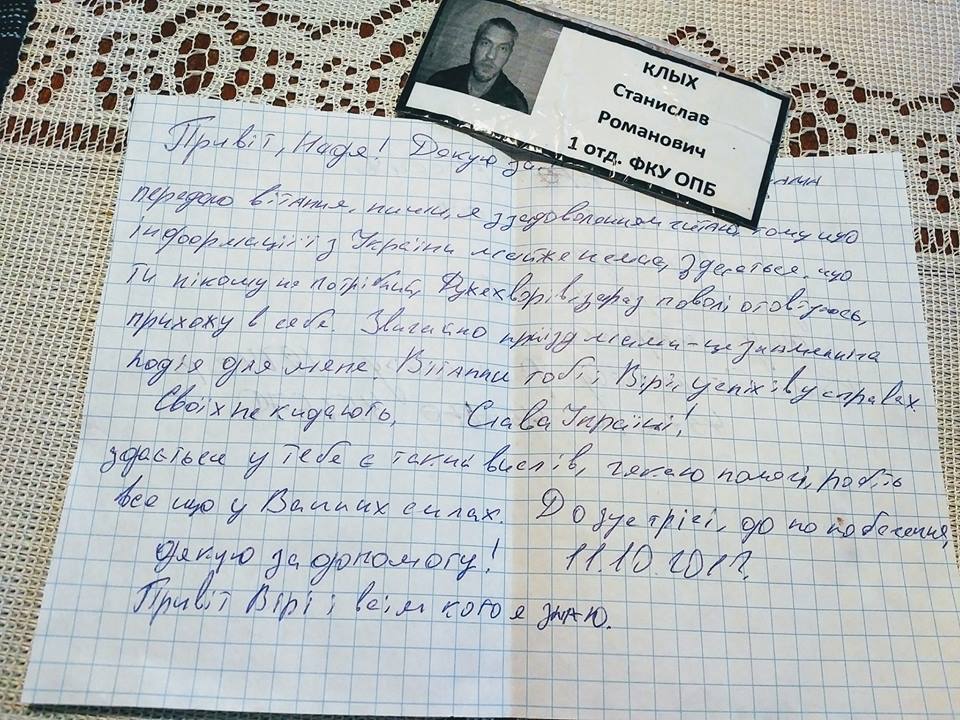 КЛЫХ
Станислав
Романович
1 отд. ФКУ ОПБ
Привіт, Надя! Дякую за
передаю вітання, пишу, я з задоволенням читаю, тому що
інформації з України майже немає, здається, що
ти нікому не потрібний. Дуже хворів, зараз поволі
прихожу в себе. Звичайно приїзд мами - це знаменна
подія для мене. Вітання тобі і Вірі, успіхів у справах.
Своїх не кидають, Слава Україні!
здається у тебе є такий вислів, чекаю помочі, робіть
все що у Ваших силах. До зустрічі, до побачення,
дякую за допомогу! 11.10.2017.
Привіт Вірі і всім кого я знаю.